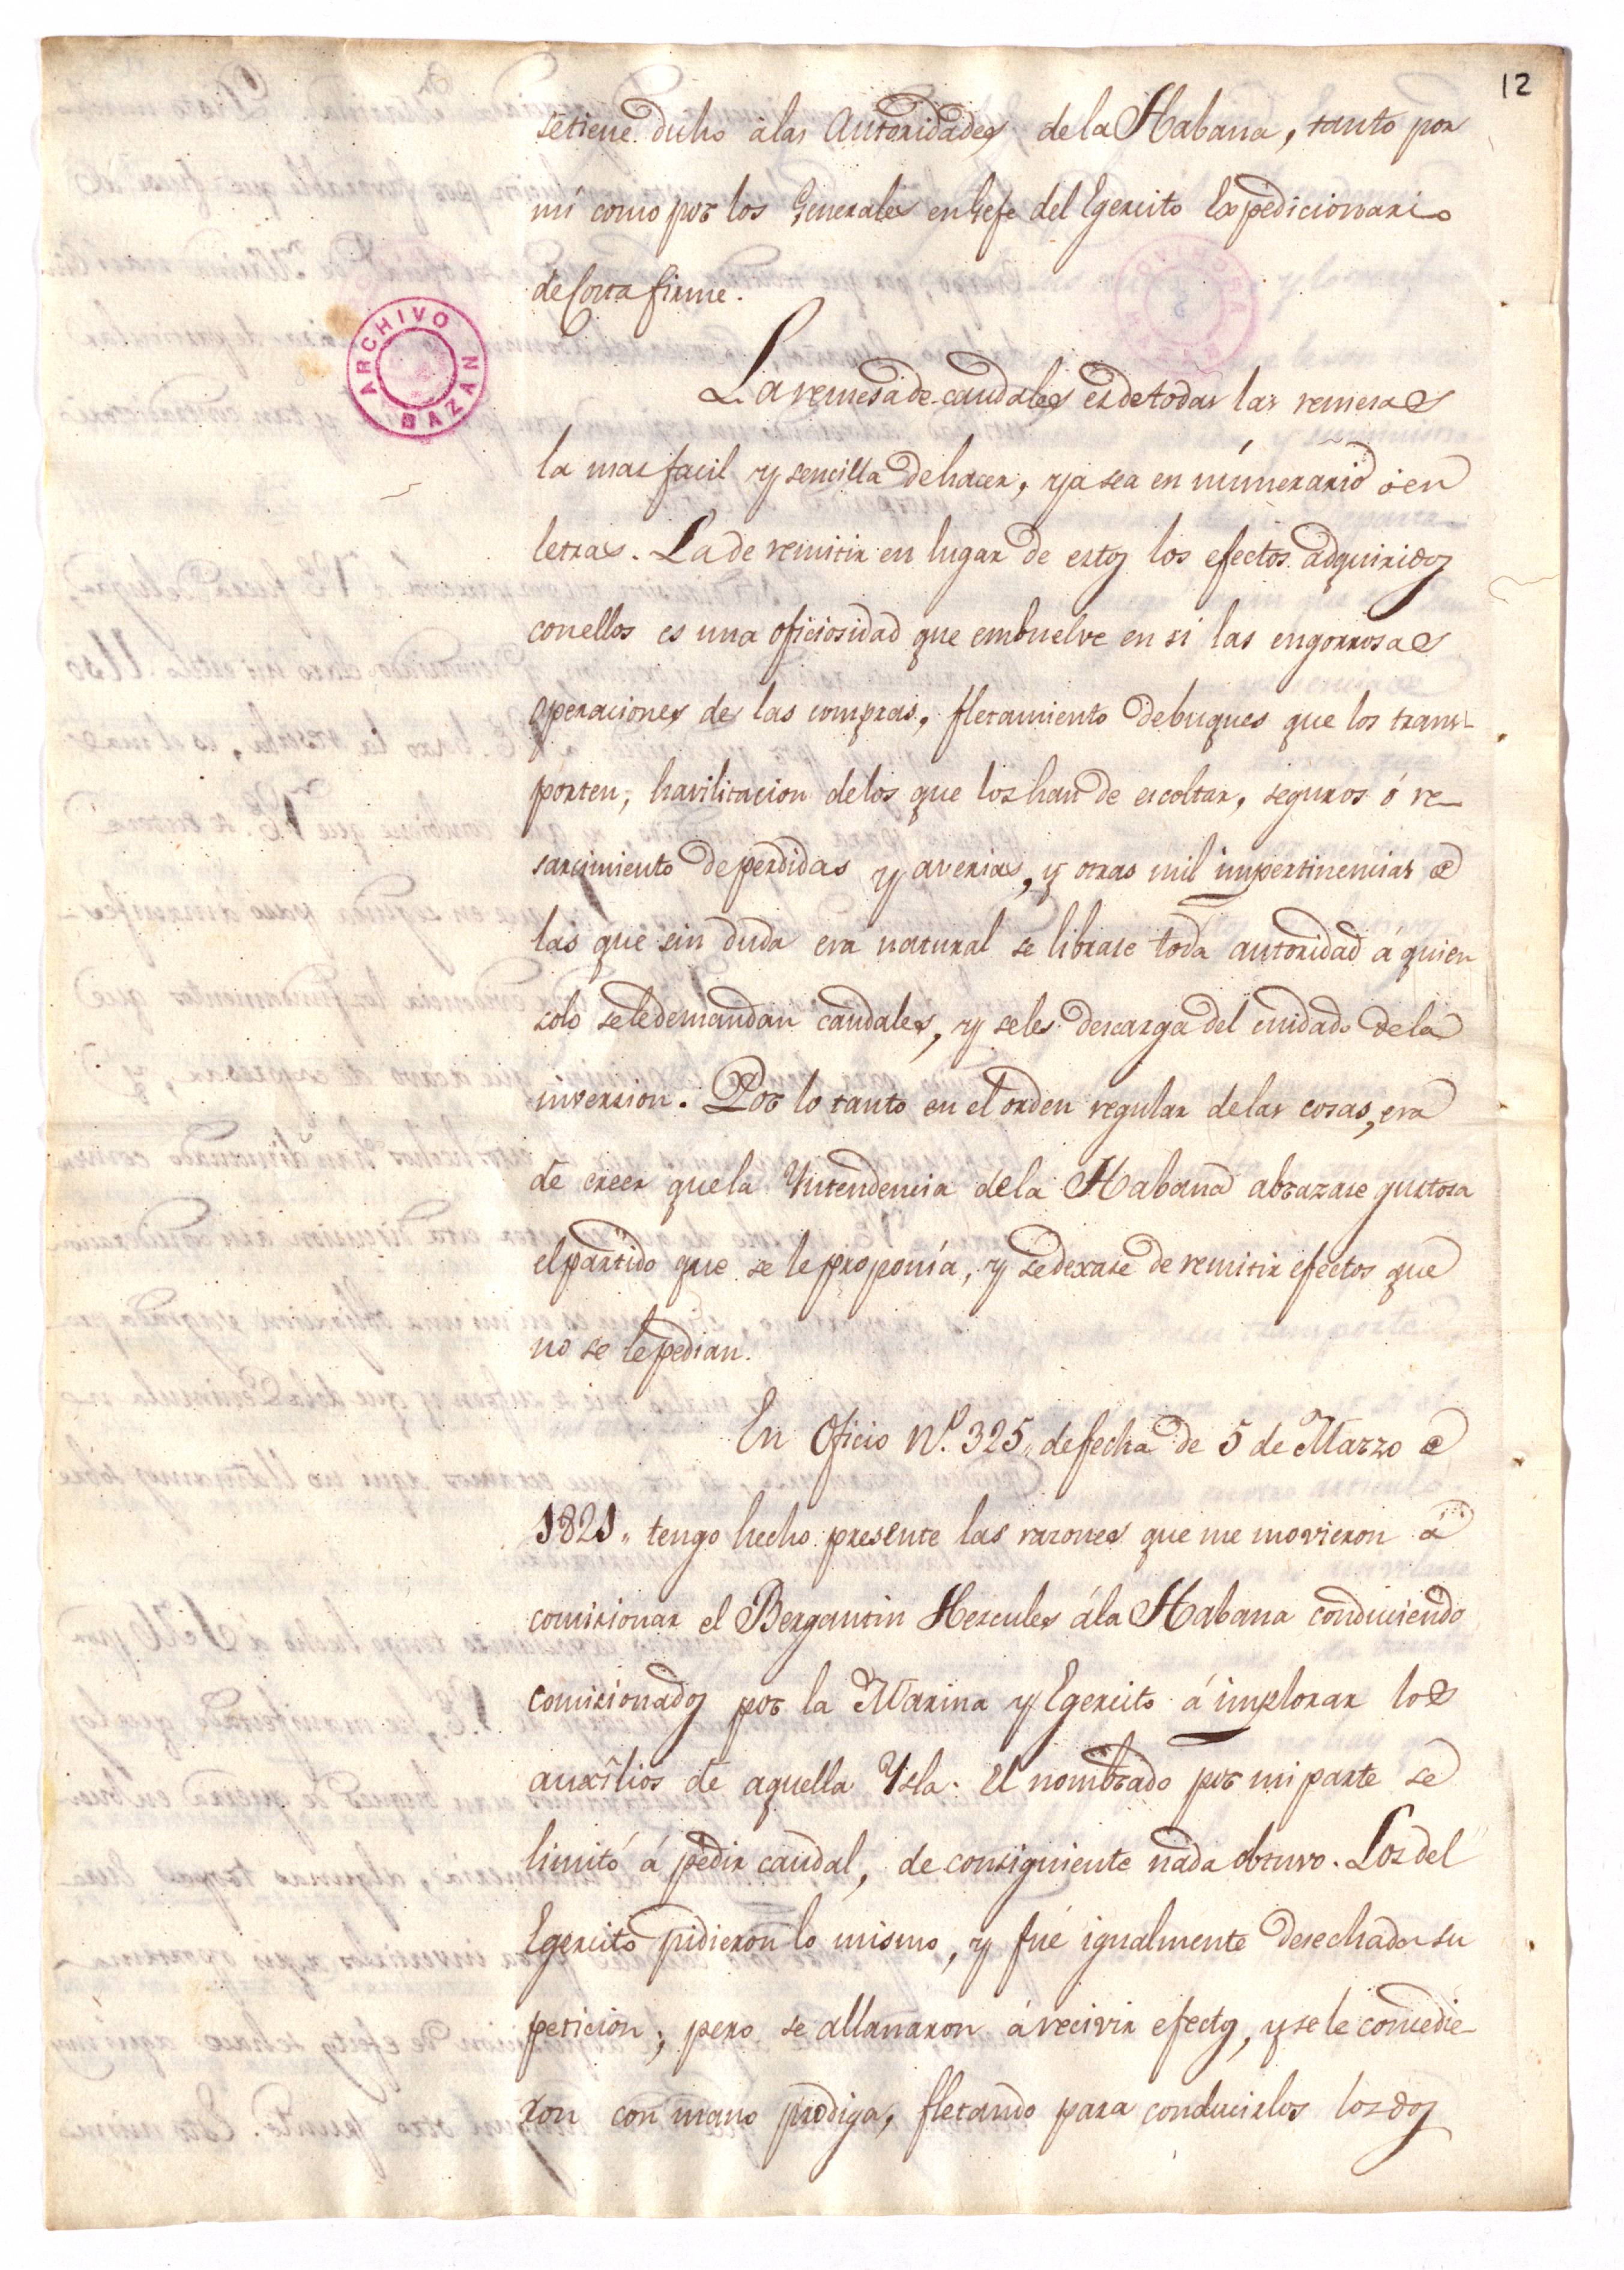 12
se tiene dicho à las Autoridades de la Habana, tanto por
mí como por los Generales en Gefe del Egercito Expedicionario
de Costa firme.
ARCHIVO BAZAN
La remesa de caudales es de todas las remesas
la mas facil y sencilla de hacer, ya sea en númerario ó en
letras. La de remitir en lugar de estos los efectos adquiridos
con ellos es una oficiosidad que embuelve en si las engorrosas
operaciones de las compras, fletamiento de buques que los trans-
porten, havilitacion de los que los han de escoltar, seguros ó re-
sarcimiento de perdidas y averias, y otras mil impertinencias de
las que sin duda era natural se librase toda autoridad á quien
solo se le demandan caudales, y se les descarga del cuidado de la
inversion. Por lo tanto en el orden regular de las cosas, era
de creer que la Yntendencia de la Habana abrazase gustosa
el partido que se le proponía, y se dexase de remitir efectos que
no se le pedian.
En Oficio Nº. 325,, de fecha de 5 de Marzo de
1821,, tengo hecho presente las razones que me movieron á
comisionar el Bergantin Hercules á la Habana conduciendo
comisionados por la Marina y Egercito á implorar los
auxîlios de aquella Ysla. El nombrado por mi parte se
limitó á pedir caudal, de consiguiente nada obtuvo. Los del
Egercito pidieron lo mismo, y fué igualmente desechada su
peticion; pero se allanaron á recivir efectos, y se le concedie-
ron con mano prodiga, fletando para conducirlos los dos